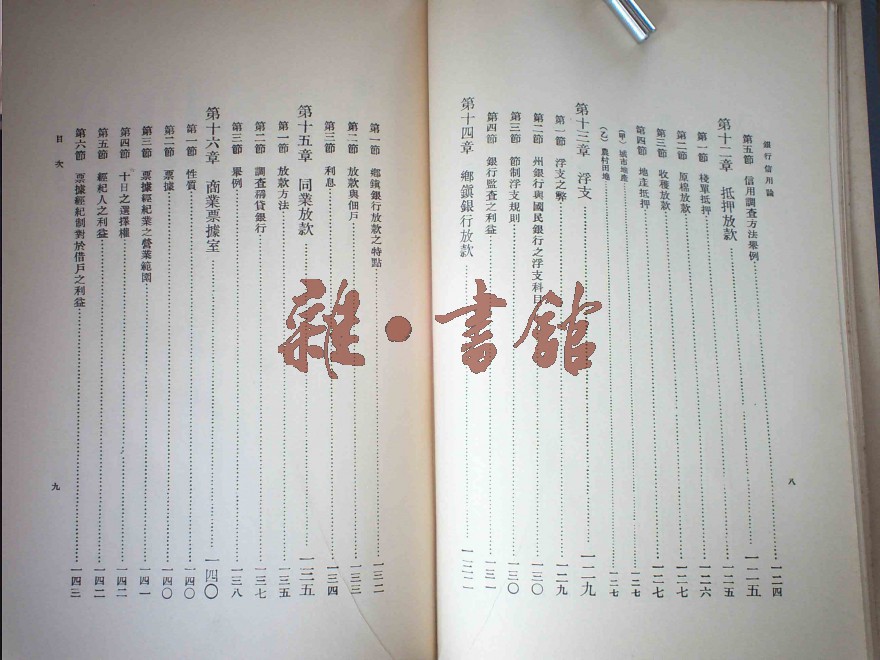 銀行信用論
八
第五節 信用調查方法舉例 一二四
第十二章 抵押放款 一二五
第一節 棧單抵押 一二五
第二節 原棉放款 一二六
第三節 收穫放款 一二七
第四節 地產抵押 一二七
(甲) 城市地產 一二七
(乙) 農村田地 一二七
第十三章 浮支 一二九
第一節 浮支之弊 一二九
第二節 州銀行與國民銀行之浮支科目 一三〇
第三節 節制浮支規則 一三〇
第四節 銀行監查之利益 一三一
第十四章 鄉鎮銀行放款 一三二
第一節 鄉鎮銀行放款之特點 一三二
第二節 放款與佃戶 一三三
第三節 利息 一三四
第十五章 同業放款 一三五
第一節 放款方法 一三五
第二節 調查稱貸銀行 一三七
第三節 舉例 一三八
第十六章 商業票據室 一四〇
第一節 性質 一四〇
第二節 票據 一四〇
第三節 票據經紀業之營業範圍 一四一
第四節 十日之選擇權 一四二
第五節 經紀人之利益 一四二
第六節 票據經紀制對於借戶之利益 一四三
目次
九
雜·書館